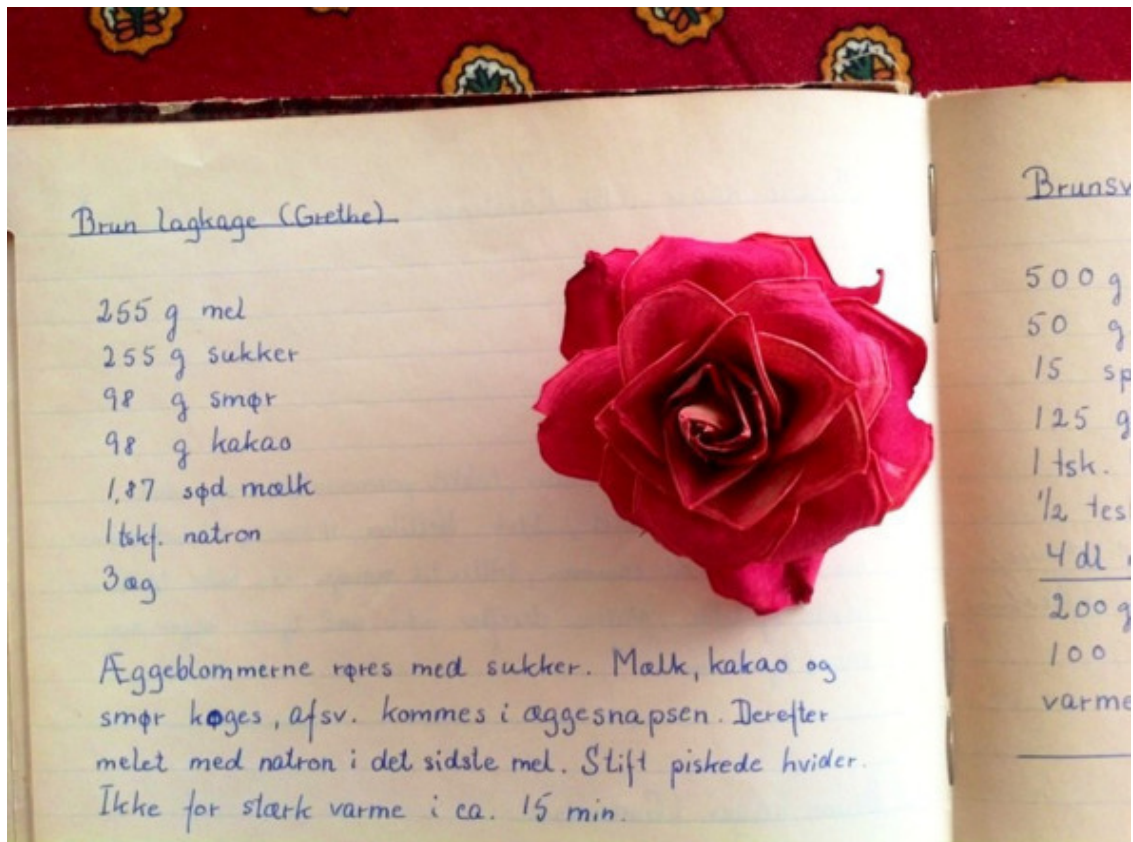 Brun lagkage (Grethe)
255 g mel
255 g sukker
98 g smør
98 g kakao
1,87 sød mælk
1 tskf. natron
3 æg
Æggeblommerne røres med sukker. Mælk, kakao og
smør koges, afsv. kommes i æggesnapsen. Derefter
melet med natron i det sidste mel. Stift piskede hvider.
Ikke for stærk varme i ca. 15 min.
500 g
50 g
15
125 g
1 tsk.
1/2
4 dl
200 g
100
varme